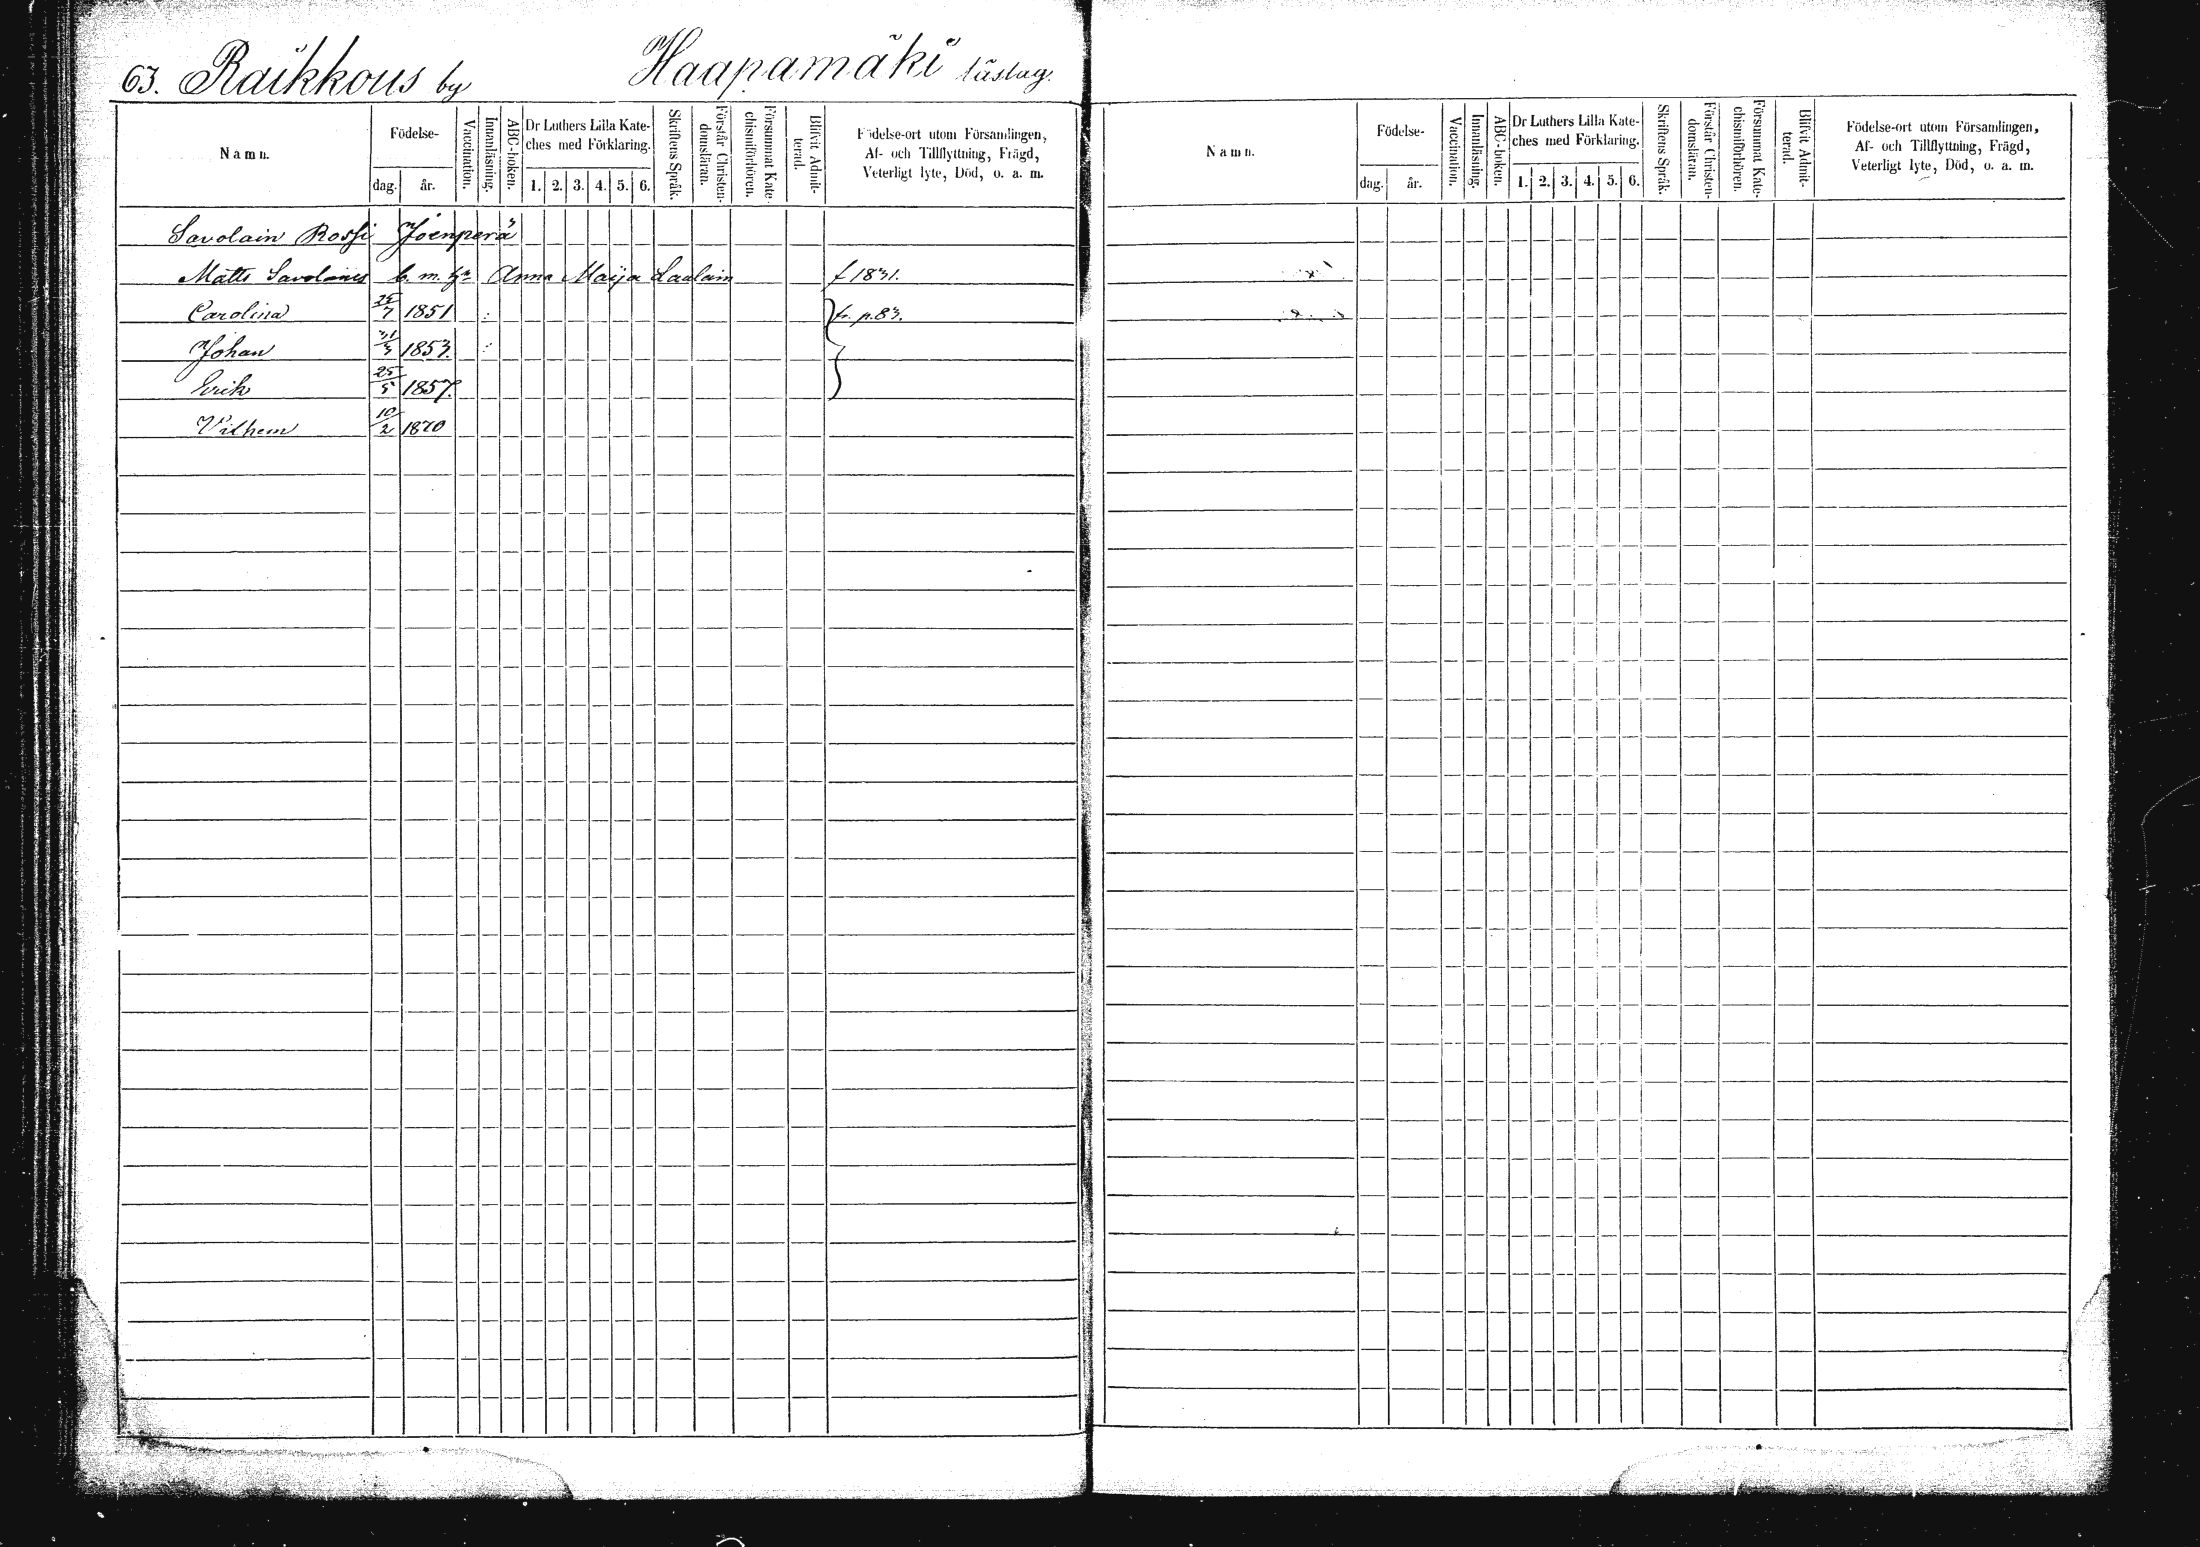 63. Raikkous by Haapamäki läslag.
Namn. Födelse- dag. år. Vaccination. Innanläsning. ABC-boken. Dr Luthers Lilla Kateches med Förklaring. 1. 2. 3. 4. 5. 6. Skriftens Språk. Förstår Christendomsläran. Försummat Katechismiförhören. Blifvit Admitterad. Födelse-ort utom Församlingen, Af- och Tillflyttning, Frägd, Veterligt lyte, Död, o. a. m.
Savolain Rossi Joenperä
Matts Savolaines b. m. hu Anna Maija Laulain f 1831.
Carolina 25/7 1851 fr. p. 83.
Johan 31/3 1853.
Erik 25/5 1857.
Vilhem 10/2 1870
Namn. Födelse- dag. år. Vaccination. Innanläsning. ABC-boken. Dr Luthers Lilla Kateches med Förklaring. 1. 2. 3. 4. 5. 6. Skriftens Språk. Förstår Christendomsläran. Försummat Katechismiförhören. Blifvit Admitterad. Födelse-ort utom Församlingen, Af- och Tillflyttning, Frägd, Veterligt lyte, Död, o. a. m.